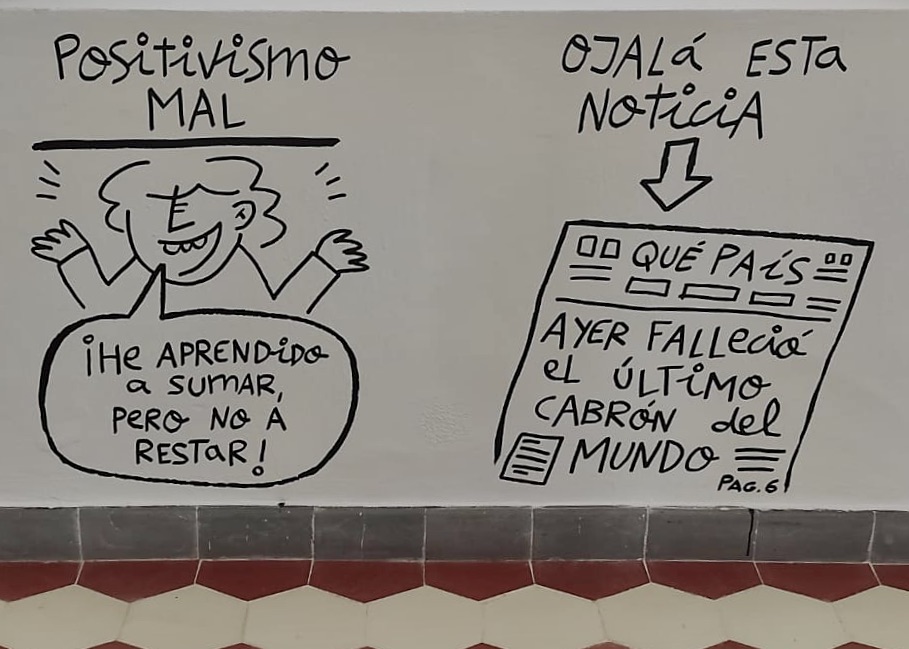 Positivismo
MAL
¡He APRENDiDo
a SUMAR,
PERO NO A
RESTAR!
OJALÁ ESTA
NoticiA
QUÉ PAÍS
AYER FALLeció
eL ÚLTiMO
CABRÓN del
MUNDO
PAG. 6